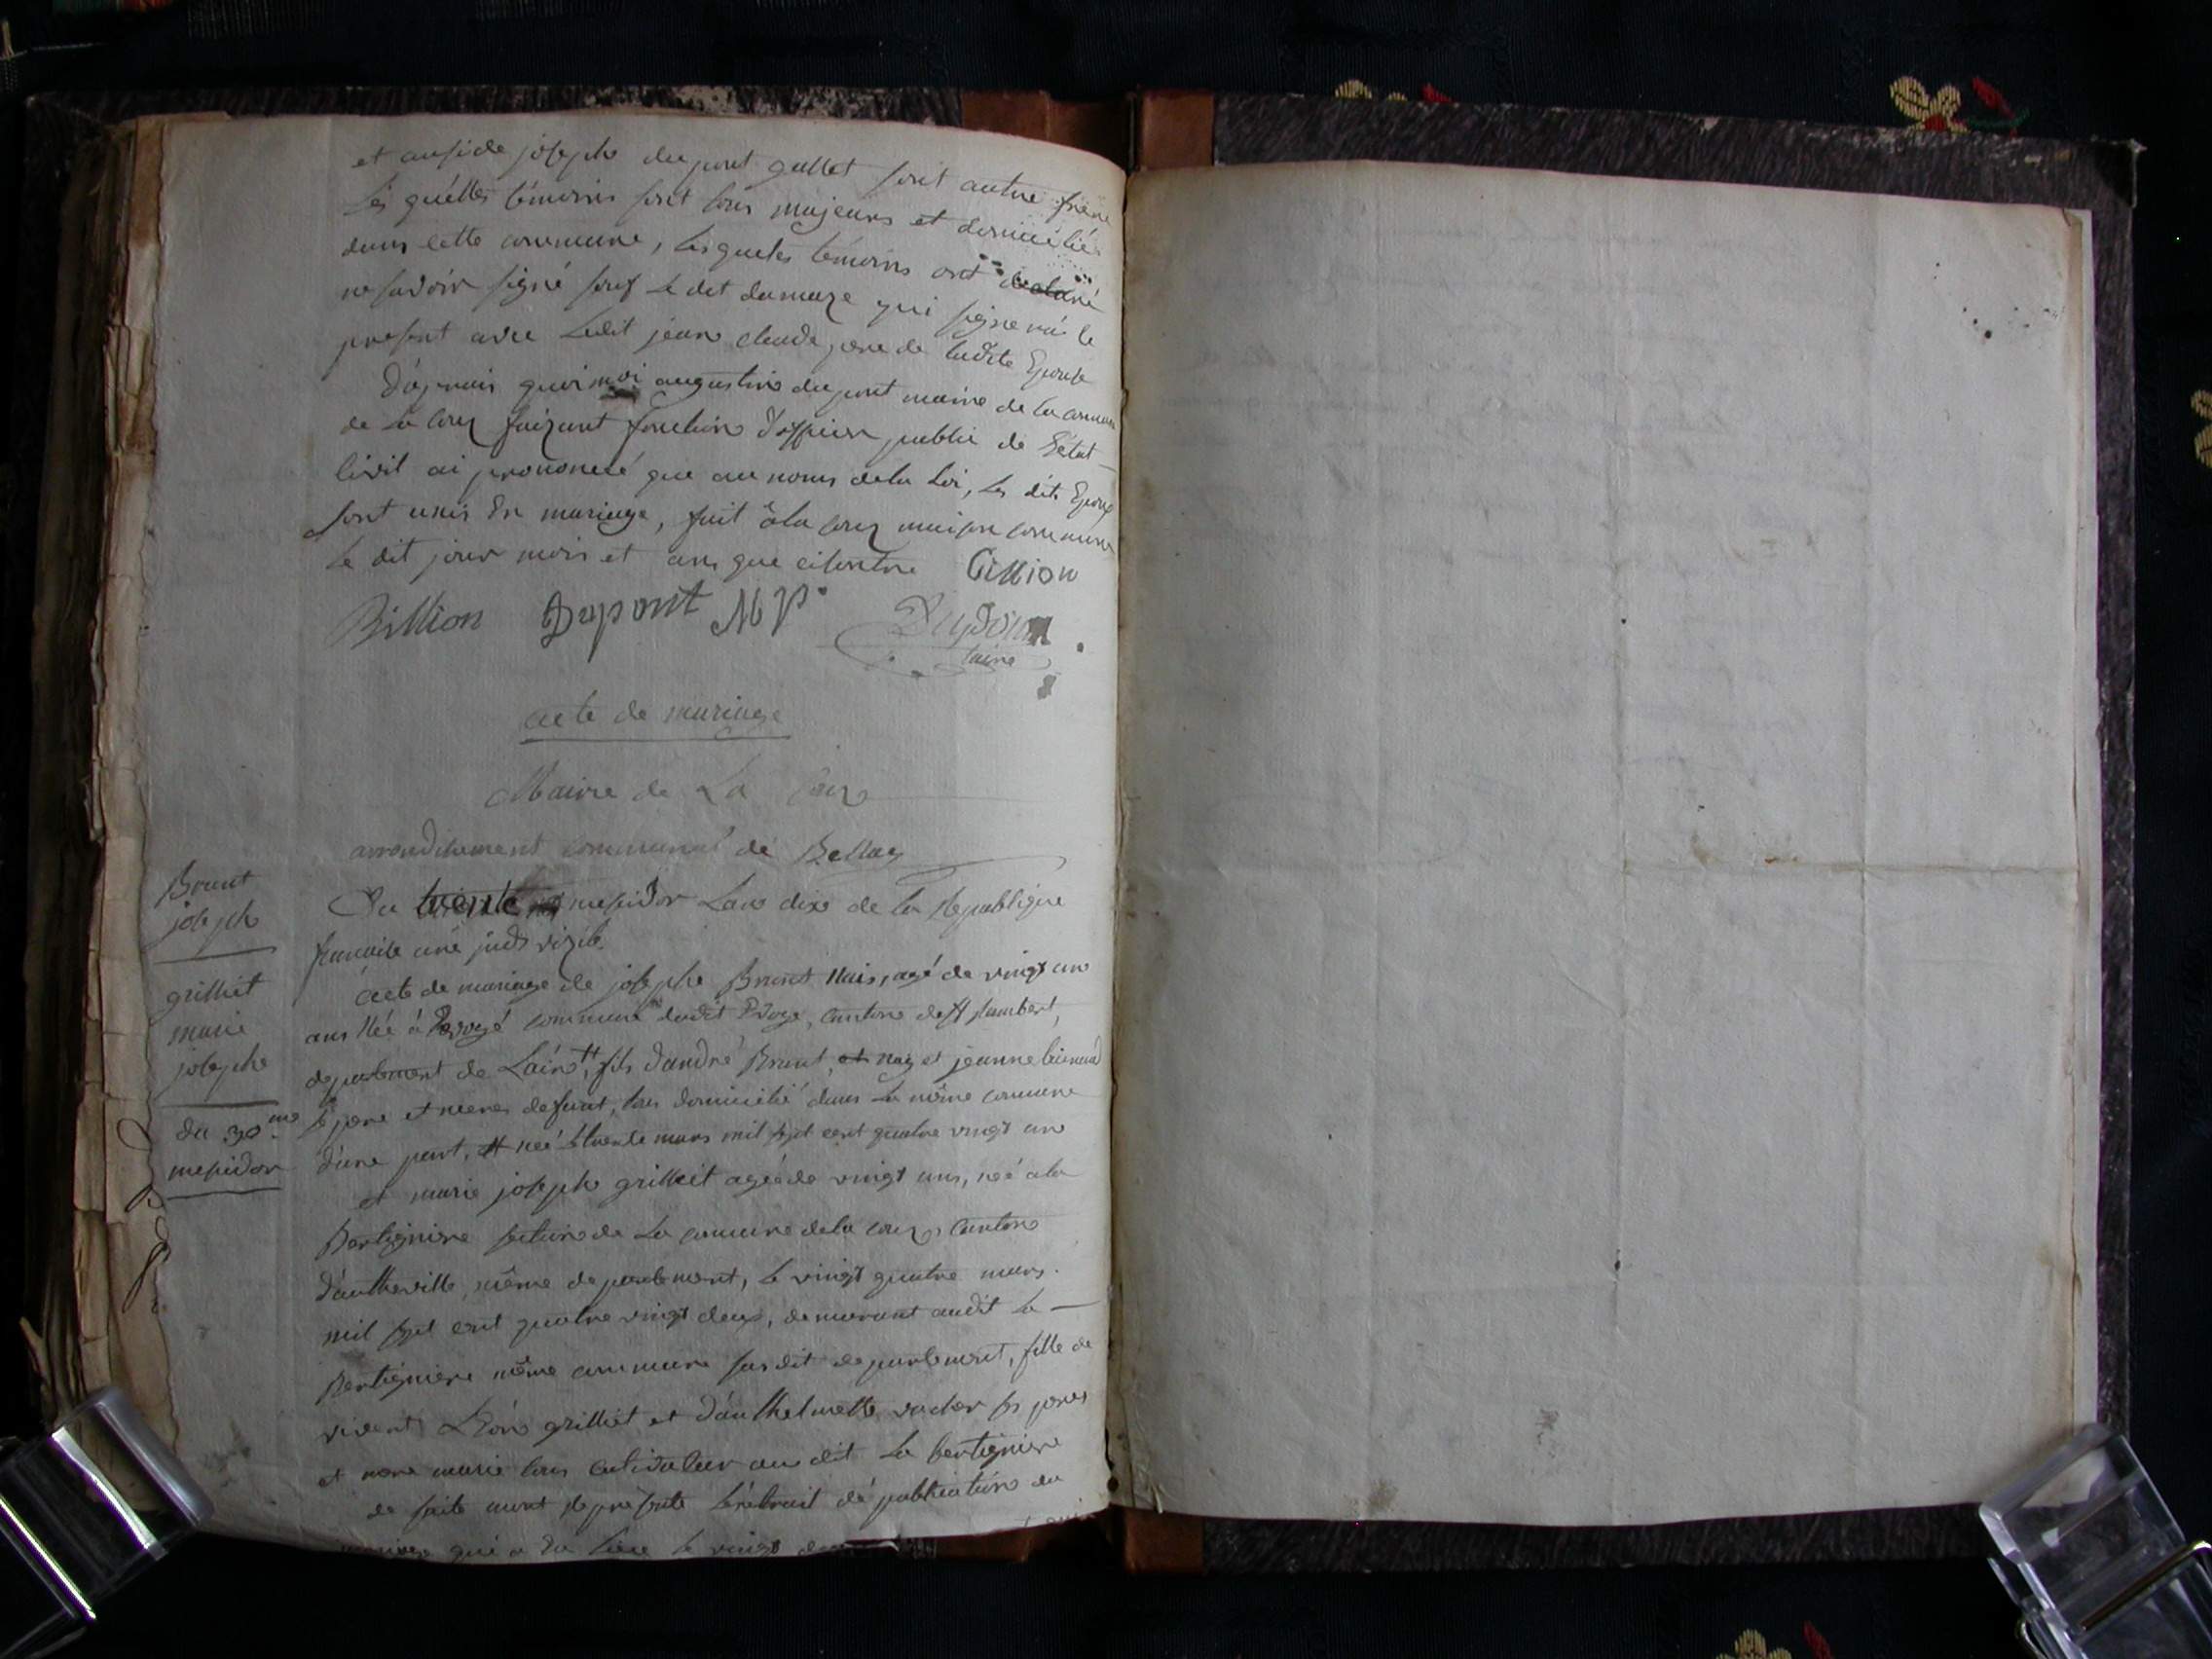 et ausside joseph dupont gallet soit autre frere
Les quelles témoins sont tous majeurs et domicilié
dans cette commune, lesquels témoins ont declaré
ne savoir signé sauf le dit damaze qui signera le
present avec Ledit jean claude pere de ladite Epouse
D'aprais quoi moi augustin dupont maire de la commune
de la couz faizant fonction d'officier public de l'état
Civil ai prononcé que au noms de la loi, les dits Epoux
sont unis En mariage, fait à la couz maison commune
le dit jour mois et ans que cicontre Cillion
Billion Dupont M P
Dupont
maire
acte de mariage
Mairie de La Couz
arrondissement communal de Belley
Du trente messidor Lan dix de la Republique
francaise une indivizible
Acte de mariage de joseph Brunt Nais, agé de vingt un
ans Née à commune dudit canton de st Rambert,
departement de Lain, fils d'andré Brunt, et naiz et jeanne
se pere et mere defunt, tous domicilié dans la même comune
d'une part, née le trente mars mil sept cent quatre vingt un
et marie joseph grilliet agée de vingt ans, née a la
Bertigniere section de La comune de la couz Canton
d'autheville, même departement, le vingt quatre mars
mil sept cent quatre vingt deux, demeurant audit La
Bertigniere même commune susdit departement, fille de
vivant Léon grilliet et d'anthelmette vacher ses peres
et mere marie tous cultivateur au dit La bertigniere
de suite avont represente l'extrait de publication du
mariage qui a Eu lieu le vingt
Brunt
joseph
grilliet
marie
josephe
du 30me
messidor